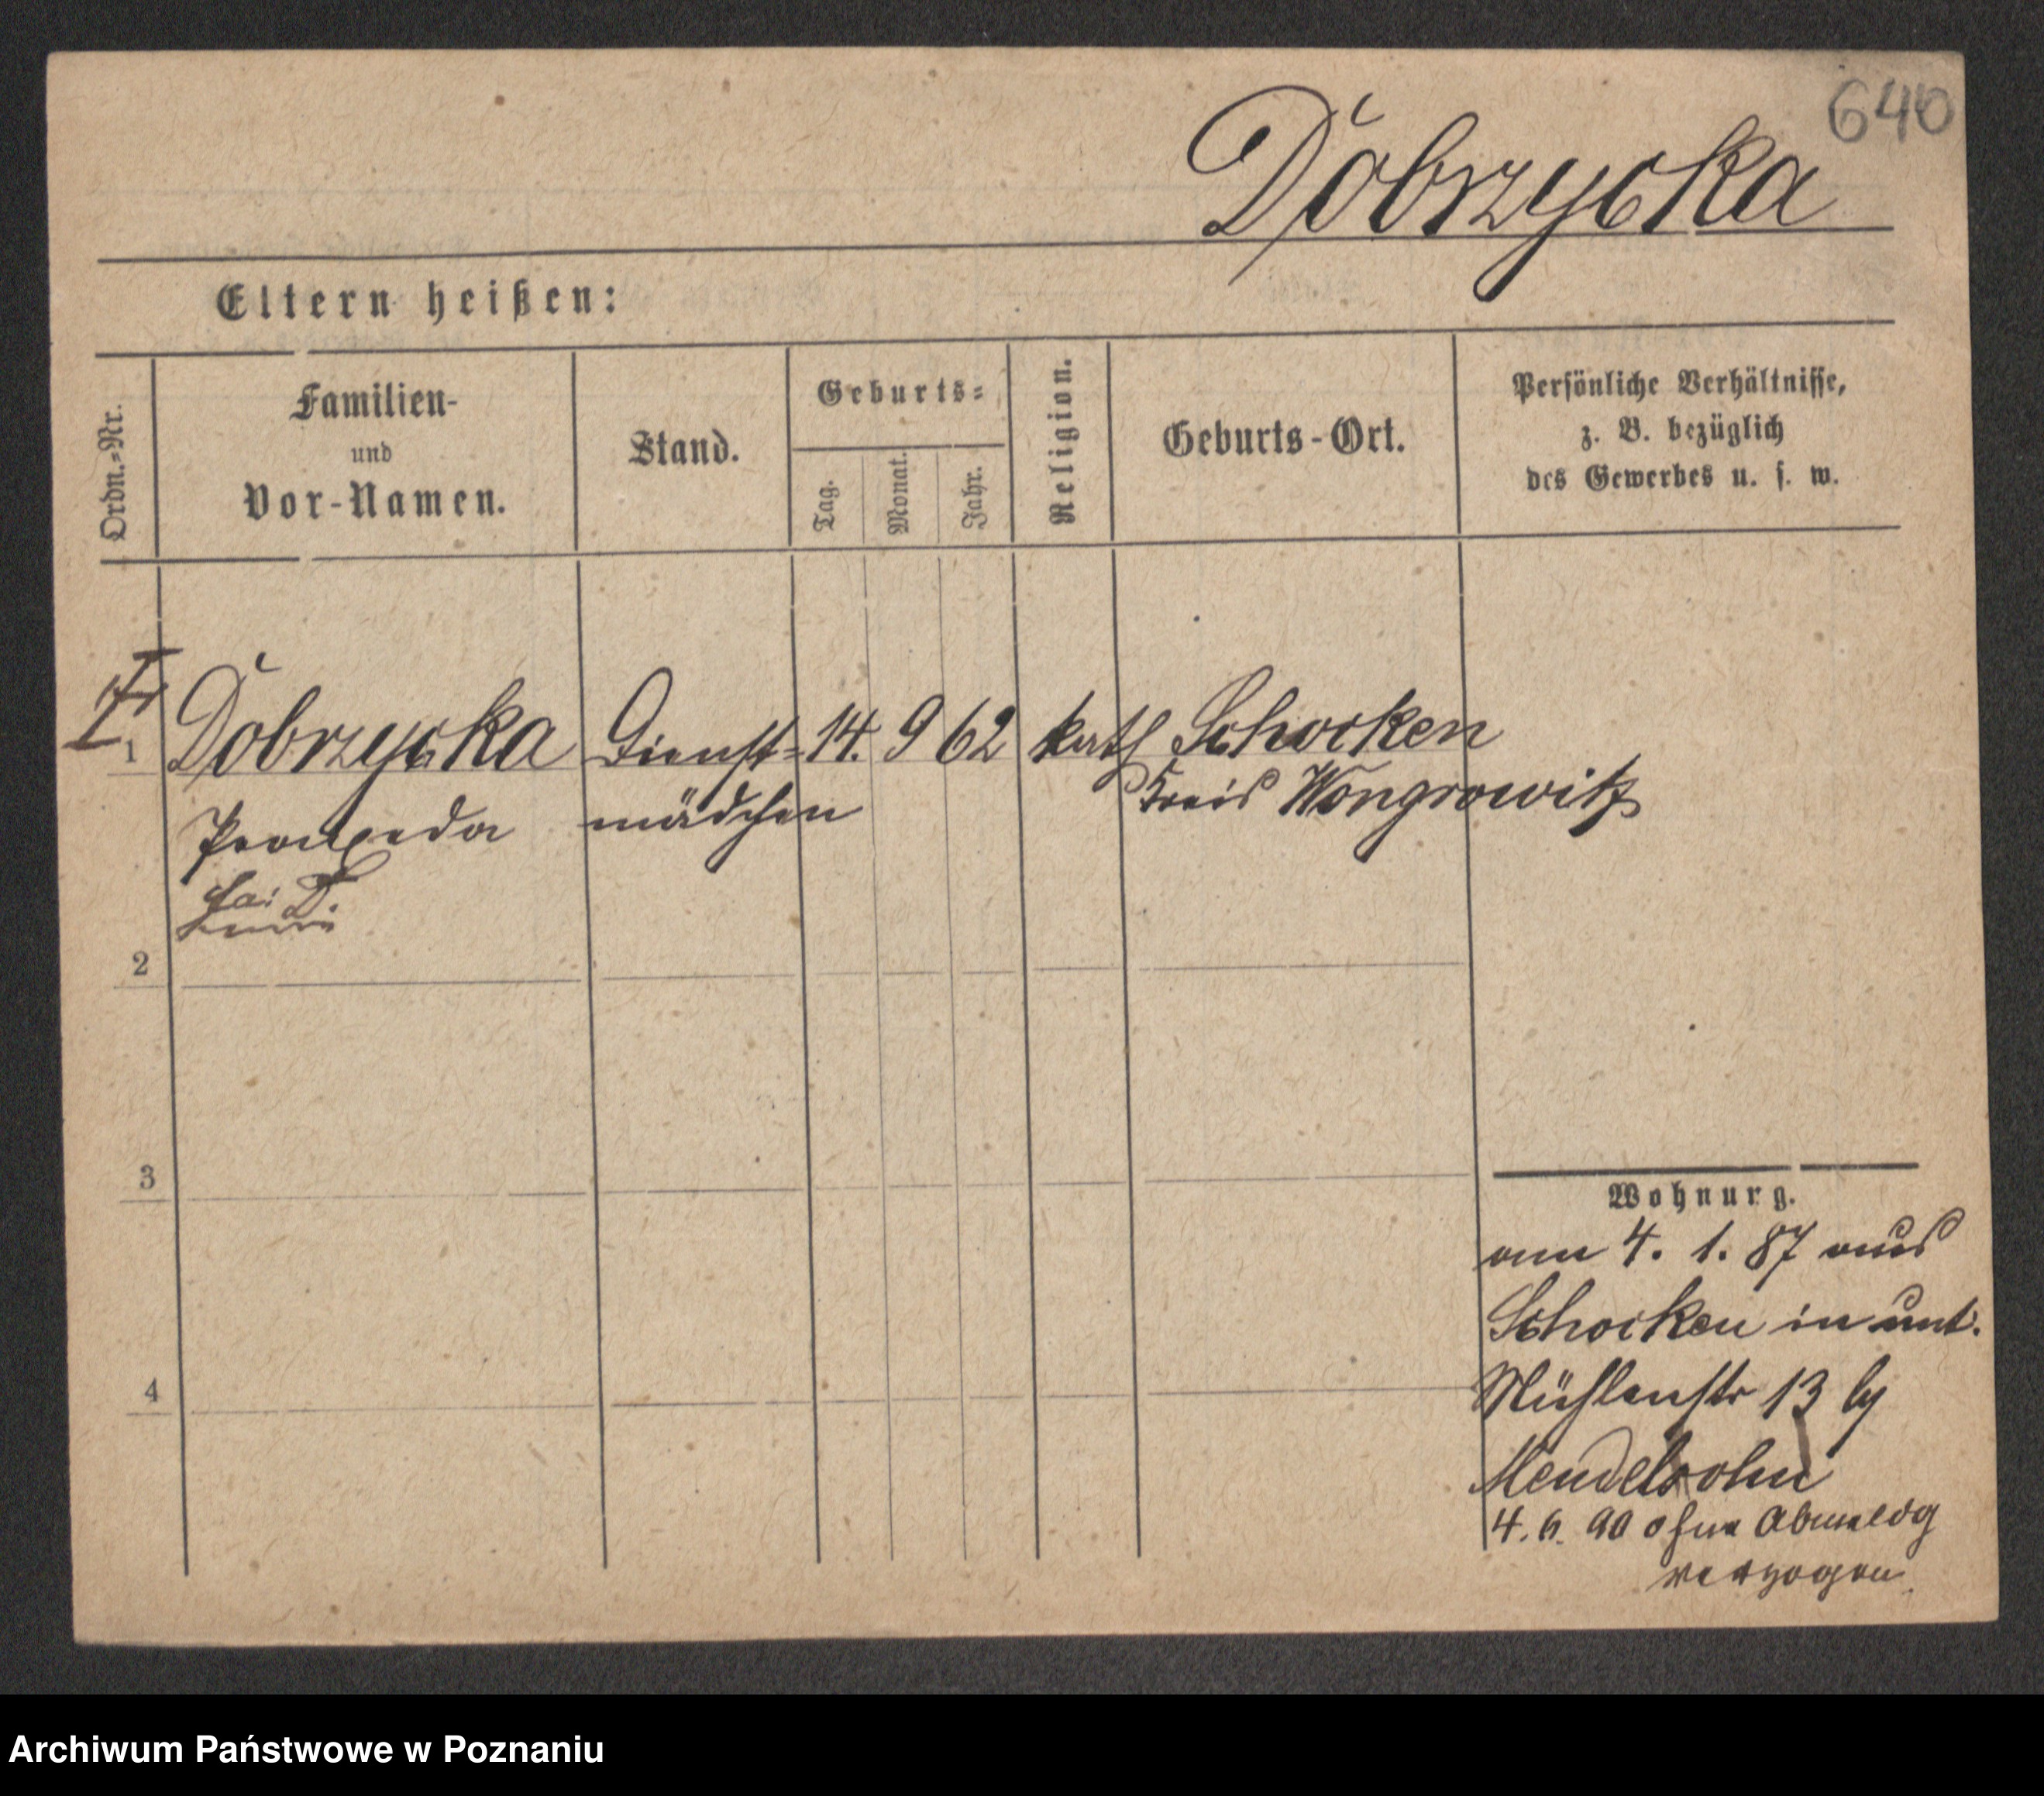 640
Dobrzycka
Eltern heißen:
Ordn.-Nr.
Familien-
und
Vor-Namen.
Stand.
Geburts-
Tag.
Monat.
Jahr.
Religion.
Geburts-Ort.
Persönliche Verhältnisse,
z. B. bezüglich
des Gewerbes u. s. w.
1 Dobrzycka Dienst- 14. 9 62 kath Schocken
Praxeda mädchen Kreis Wongrowitz
2
3
4
Wohnung.
am 4. 1. 87 aus
Schocken in unt.
Mühlenstr 13 by
Mendelsohn
4. 6. 90 ohne Abmeldg
verzogen